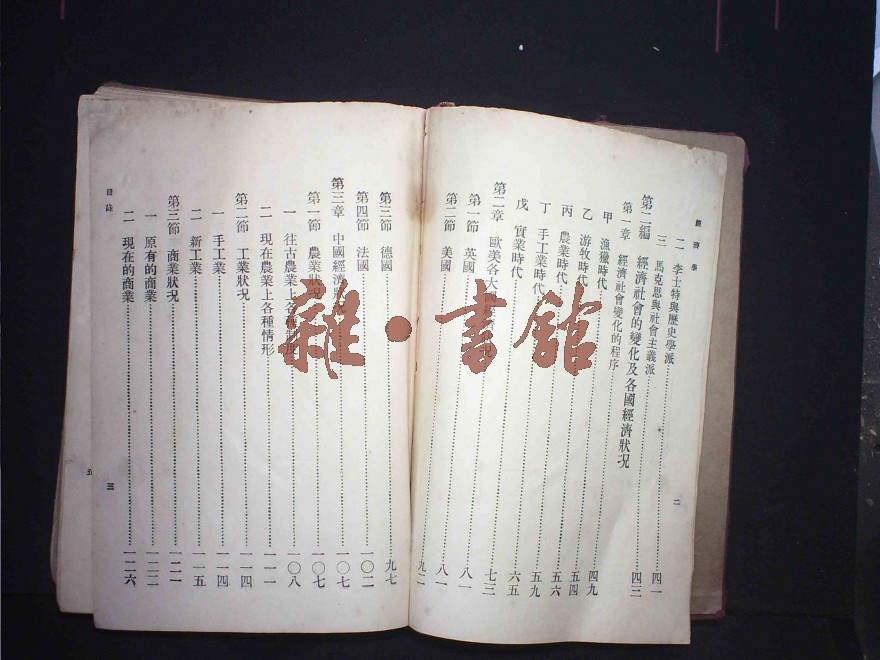 經濟學
二 李士特與歷史學派 四一
三 馬克思與社會主義派 四三
第二編 經濟社會的變化及各國經濟狀況
第一章 經濟社會變化的程序
甲 漁獵時代 四九
乙 游牧時代 五四
丙 農業時代 五六
丁 手工業時代 五九
戊 實業時代 六五
第二章 歐美各大國經濟 七三
第一節 英國 八一
第二節 美國 九二
二
目錄
第三節 德國 九七
第四節 法國 一〇二
第三章 中國經濟狀況 一〇七
第一節 農業狀況 一〇七
一 往古農業上各種制度 一〇八
二 現在農業上各種情形 一一一
第二節 工業狀況 一一四
一 手工業 一一四
二 新工業 一一五
第三節 商業狀況 一二一
一 原有的商業 一二二
二 現在的商業 一二六
三
五
雜·書館